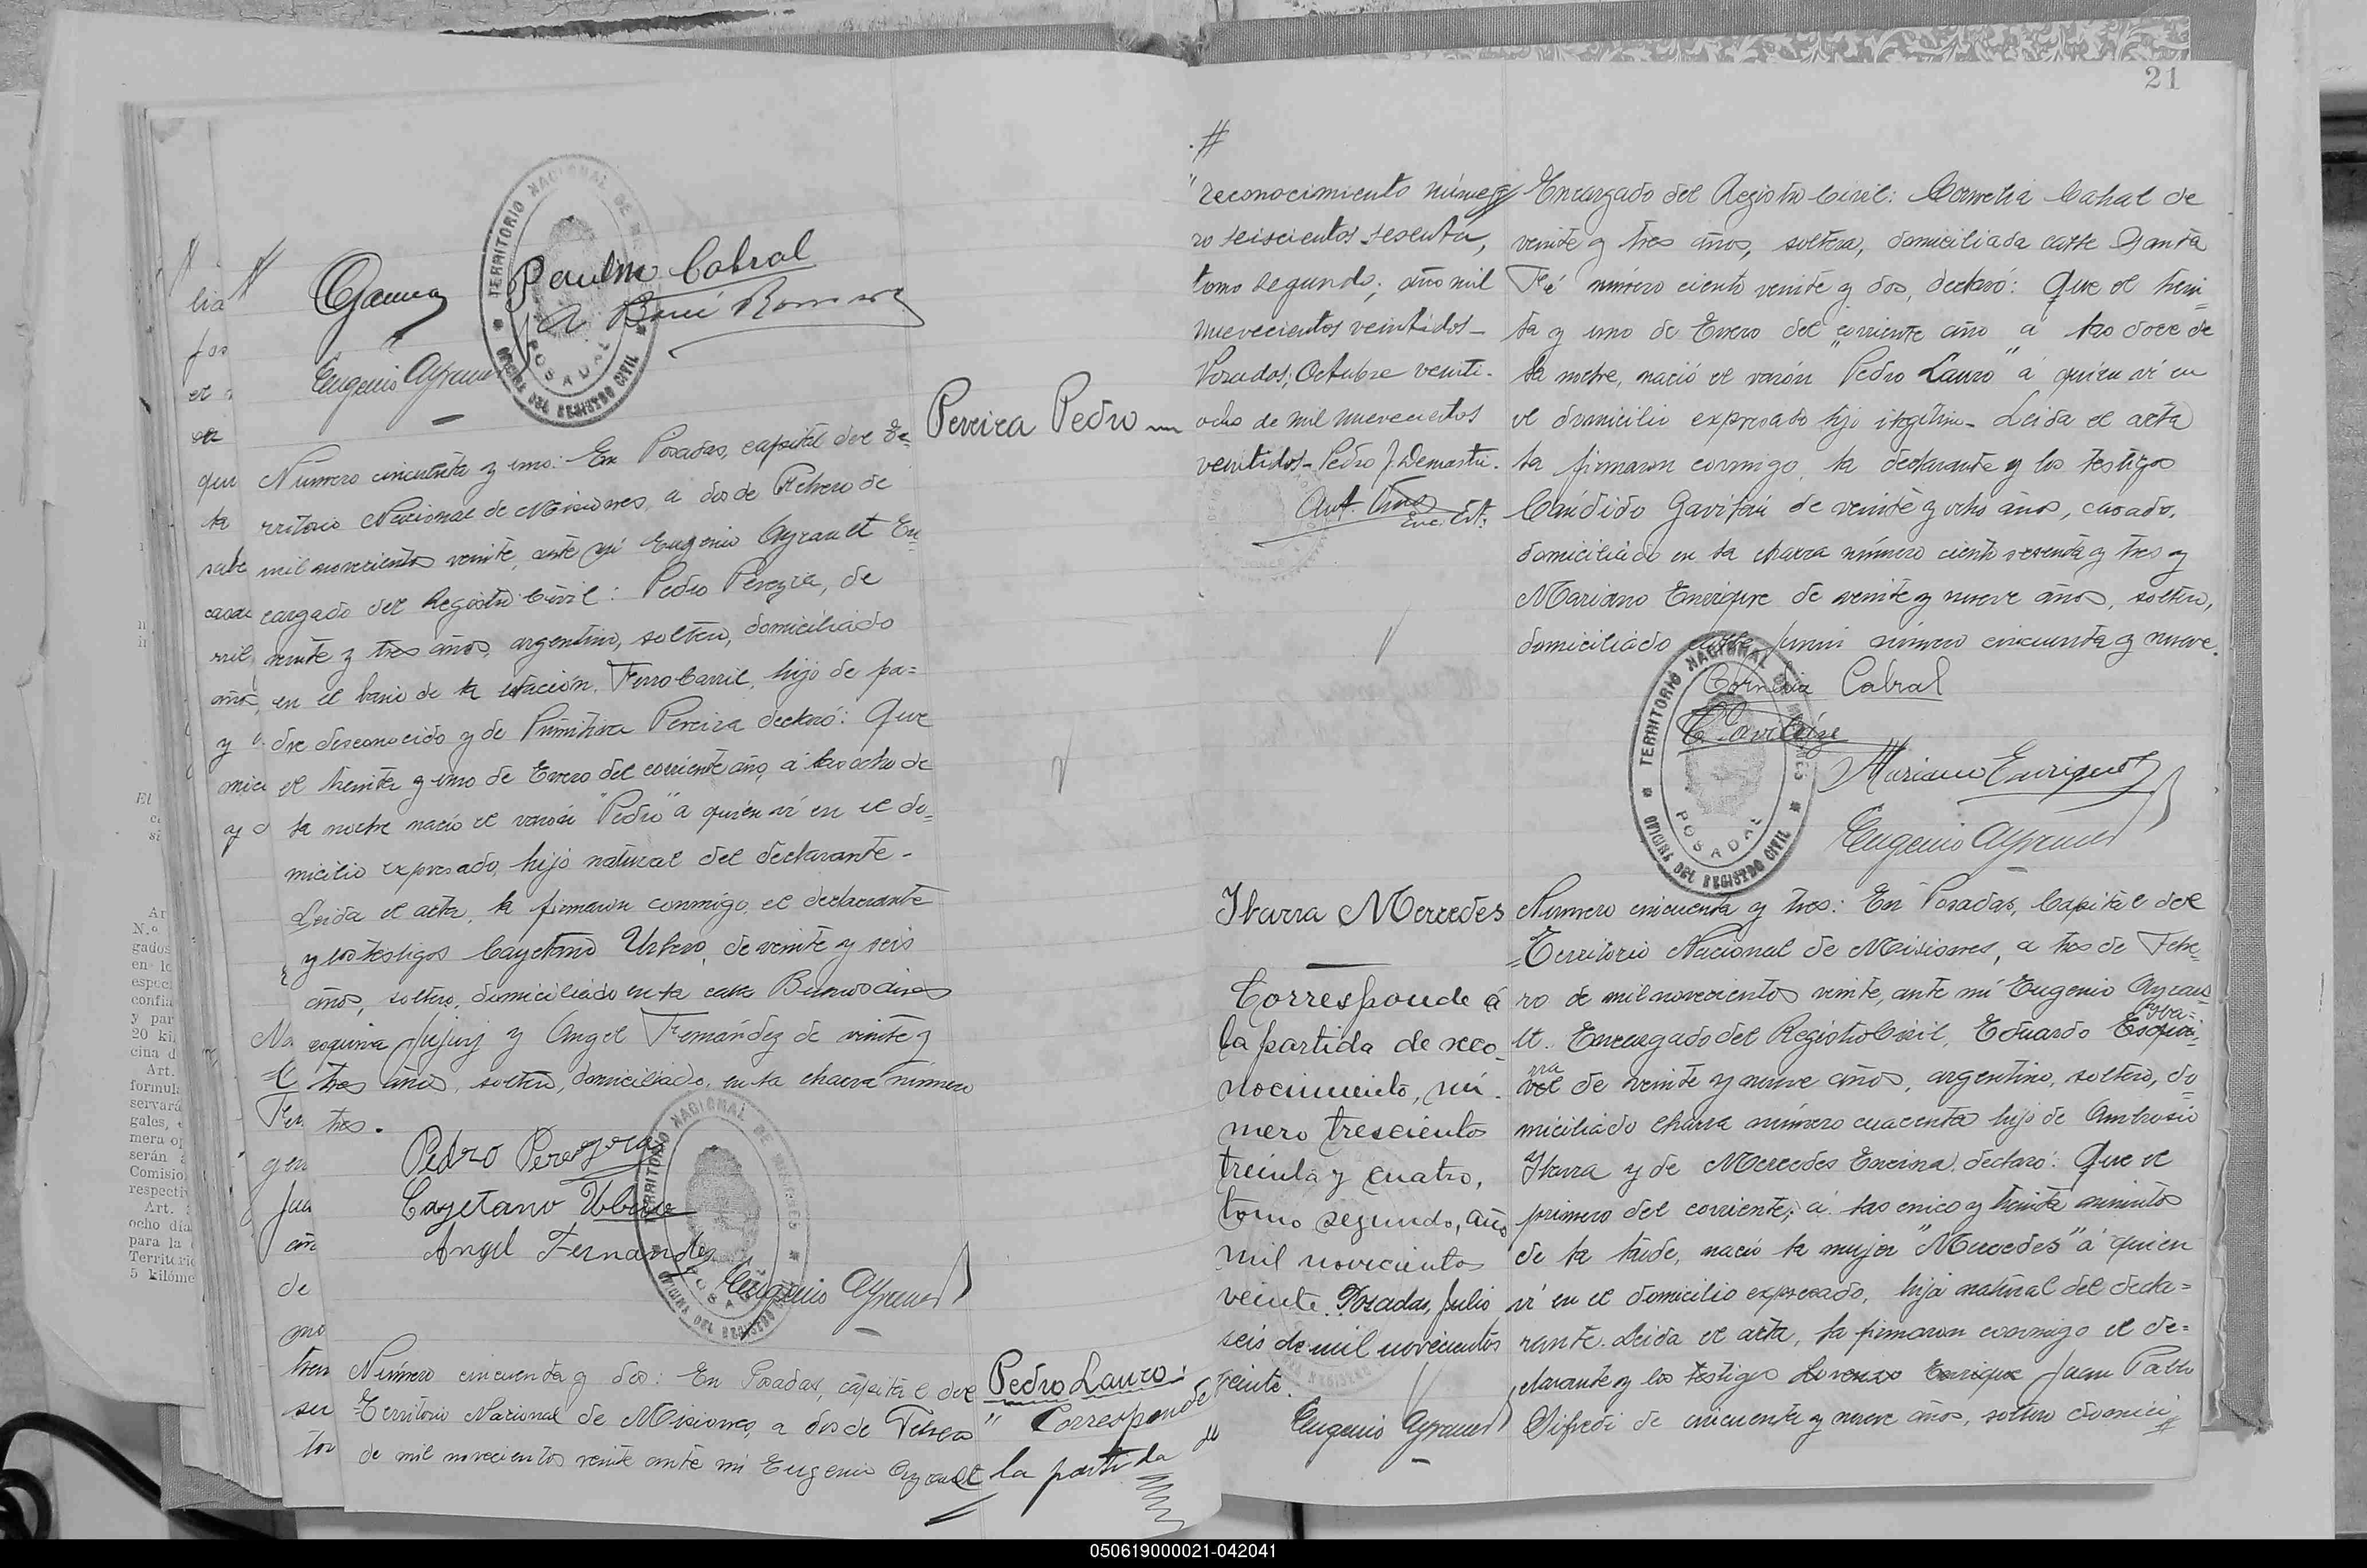 Gauna
Paulino Cabral
Eugenio Ayrault
TERRITORIO NACIONAL DE MISIONES
POSADAS
OFICINA DEL REGISTRO CIVIL
Pereira Pedro
Número cincuenta y uno: En Posadas, capital del Te-
rritorio Nacional de Misiones, a dos de Febrero de
mil novecientos veinte, ante mí Eugenio Ayrault En-
cargado del Registro Civil: Pedro Pereyra, de
veinte y tres años, argentino, soltero, domiciliado
en el barrio de la estación Ferro Carril, hijo de pa=
dre desconocido y de Primitiva Pereira declaró: Que
el treinta y uno de Enero del corriente año, á las ocho de
la noche nació el varón "Pedro" a quien ví en el do=
micilio expresado, hijo natural del declarante-
Leida el acta, la firmaron conmigo, el declarante
y los testigos Cayetano Urbano, de veinte y seis
años, soltero, domiciliado en la calle Buenos Aires
esquina Jujuy y Angel Fernández de veinte y
tres años, soltero, domiciliado, en la chacra número
tres.
Pedro Pereyra
Cayetano
Angel Fernandez
Eugenio Ayrault
TERRITORIO NACIONAL DE MISIONES
POSADAS
OFICINA DEL REGISTRO CIVIL
Número cincuenta y dos: En Posadas, capital del
Territorio Nacional de Misiones, a dos de Febrero
de mil novecientos veinte ante mi Eugenio Ayrault
Pedro Lauro.
" Corresponde á
la partida de
21
#
" reconocimiento núme
ro seiscientos sesenta,
tomo segundo, año mil
nuevecientos veintidos-
Posadas, Octubre veinti-
ocho de mil nuevecientos
veintidos- Pedro J. Demastri.
Enc. Est.
Encargado del Registro Civil: Cornelia Cabral de
veinte y tres años, soltera, domiciliada calle Santa
Fé número ciento veinte y dos, declaró: Que el trein-
ta y uno de Enero del corriente año a las doce de
la noche, nació el varón "Pedro Lauro" á quien ví en
el domicilio expresado hijo ilegítimo- Leida el acta
la firmaron conmigo, la declarante y los testigos
Cándido de veinte y ocho años, casado,
domiciliado en la chacra número ciento sesenta y tres y
Mariano Enrique de veinte y nueve años, soltero,
domiciliado calle Junin número cincuenta y nueve.
Cornelia Cabral
Mariano Enrique
Eugenio Ayrault
TERRITORIO NACIONAL DE MISIONES
POSADAS
OFICINA DEL REGISTRO CIVIL
Ibarra Mercedes
Corresponde á
la partida de reco-
nocimiento, nú-
mero trescientos
treinta y cuatro,
tomo segundo, año
mil novecientos
veinte. Posadas, Julio
seis de mil novecientos
veinte.
Eugenio Ayrault
Número cincuenta y tres: En Posadas, Capital del
Territorio Nacional de Misiones, a tres de Febre-
ro de mil novecientos veinte, ante mí Eugenio Ayrau-
lt. Encargado del Registro Civil, Eduardo Esqui- Iba=
vel rra de veinte y nueve años, argentino, soltero, do-
miciliado chacra número cuarenta hijo de Ambrosio
Ibarra y de Mercedes Encina, declaró: Que el
primero del corriente, á las cinco y treinta minutos
de la tarde, nació la mujer "Mercedes" á quien
ví en el domicilio expresado, hija natural del decla=
rante. Leida el acta, la firmaron conmigo el de=
clarante y los testigos Lorenzo Enrique Juan Pablo
Sifredi de cincuenta y nueve años, soltero domici
#
050619000021-042041